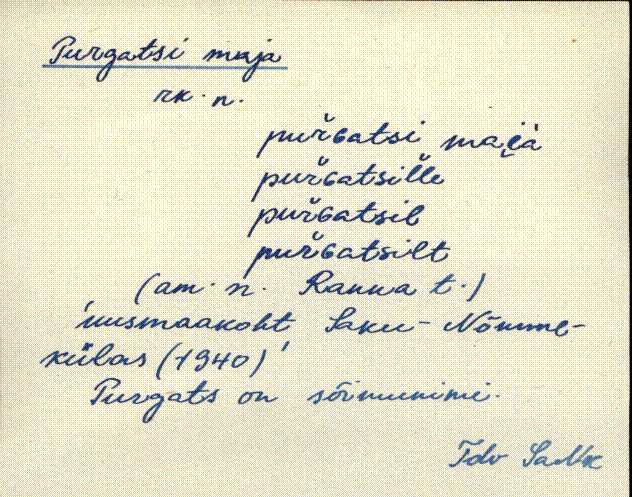 Purgatsi maja
rk. n.
purɢatsi mai̯jà
purɢatsille
purɢatsil
purɢatsilt
(am. n. Ranna t.)
'uusmaakoht Saku-Nõmme-
külas (1940)'
Purgats on sõimunimi.
Tdv